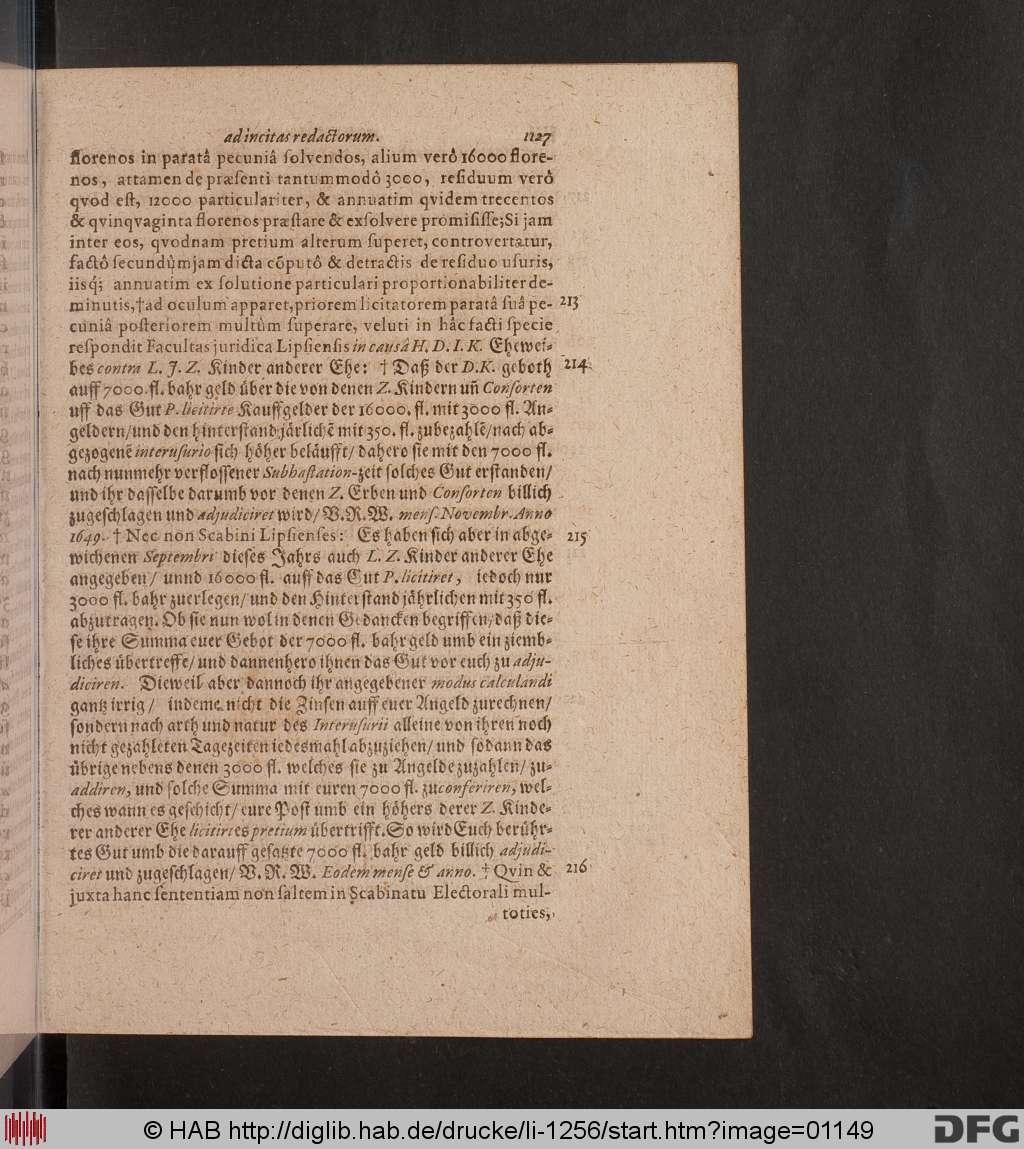 ad incitas redactorum. 1127
florenos in paratâ pecuniâ ſolvendos, alium verò 16000 flore-
nos, attamen de præſenti tantummodò 3000, reſiduum verò
qvod eſt, 12000 particulariter, & annuatim qvidem trecentos
& qvinqvaginta florenos præſtare & exſolvere promiſiſſe; Si jam
inter eos, qvodnam pretium alterum ſuperet, controvertatur,
factô ſecundùm jam dicta cõputô & detractis de reſiduo uſuris,
iisq́; annuatim ex ſolutione particulari proportionabiliter de-
minutis, † ad oculum apparet, priorem licitatorem paratâ ſuâ pe- 213
cuniâ poſteriorem multùm ſuperare, veluti in hâc facti ſpecie
reſpondit Facultas juridica Lipſienſis in causâ H. D. I. K. Ehewei-
bes contra L. J. Z. Kinder anderer Ehe: † Daß der D.K. geboth 214
auff 7000. fl. bahr geld über die von denen Z. Kindern uñ Conſorten
uff das Gut P. licitirte Kauffgelder der 16000. fl. mit 3000 fl. An-
geldern/und den hinterſtand järlichẽ mit 350. fl. zubezahlẽ/nach ab-
gezogenẽ interuſurio ſich höher beläufft/ dahero ſie mit den 7000 fl.
nach nunmehr verfloſſener Subhaſtation-zeit ſolches Gut erſtanden/
und ihr daſſelbe darumb vor denen Z. Erben und Conſorten billich
zugeſchlagen und adjudiciret wird/ V.R.W. menſ. Novembr. Anno
1649. † Nec non Scabini Lipſienſes: Es haben ſich aber in abge- 215
wichenen Septembri dieſes Jahrs auch L. Z. Kinder anderer Ehe
angegeben/ unnd 16000 fl. auff das Gut P. licitiret, iedoch nur
3000 fl. bahr zuerlegen/ und den Hinterſtand jährlichen mit 350 fl.
abzutragen. Ob ſie nun wol in denen Gedancken begriffen/ daß die-
ſe ihre Summa euer Gebot der 7000 fl. bahr geld umb ein ziemb-
liches übertreffe/ und dannenhero ihnen das Gut vor euch zu adju-
diciren. Dieweil aber dannoch ihr angegebener modus calculandi
gantz irrig/ indeme nicht die Zinſen auff euer Angeld zurechnen/
ſondern nach arth und natur des Interuſurii alleine von ihren noch
nicht gezahleten Tagezeiten iedesmahl abzuziehen/ und ſodann das
übrige nebens denen 3000 fl. welches ſie zu Angelde zuzahlen/ zu-
addiren, und ſolche Summa mit euren 7000 fl. zu conferiren, wel-
ches wann es geſchicht/ eure Poſt umb ein höhers derer Z. Kinde-
rer anderer Ehe licitirtes pretium übertrifft. So wird Euch berühr-
tes Gut umb die darauff geſatzte 7000 fl. bahr geld billich adjudi-
ciret und zugeſchlagen/ V. R. W. Eodem menſe & anno. † Qvin & 216
juxta hanc ſententiam non ſaltem in Scabinatu Electorali mul-
toties,
© HAB http://diglib.hab.de/drucke/li-1256/start.htm?image=01149
DFG